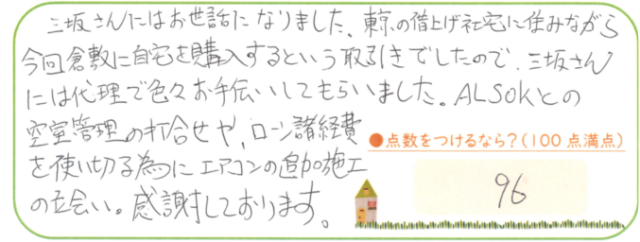 三坂さんにはお世話になりました、東京の借上げ社宅に住みながら
今回倉敷に自宅を購入するという取引きでしたので、三坂さん
には代理で色々お手伝いしてもらいました。ALSOKとの
空室管理の打合せや、ローン諸経費
を使い切る為にエアコンの追加施工
の立会い。感謝しております。
●点数をつけるなら？(100点満点)
96